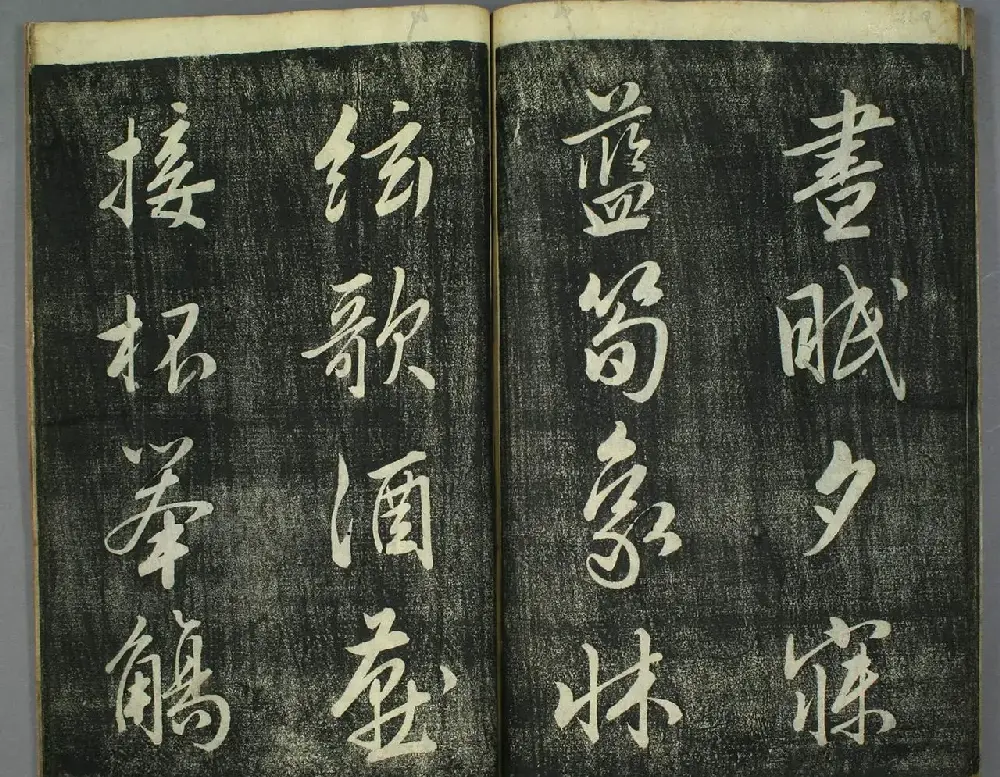 晝眠夕寐
藍筍象牀
絃歌酒燕
接杯舉觴